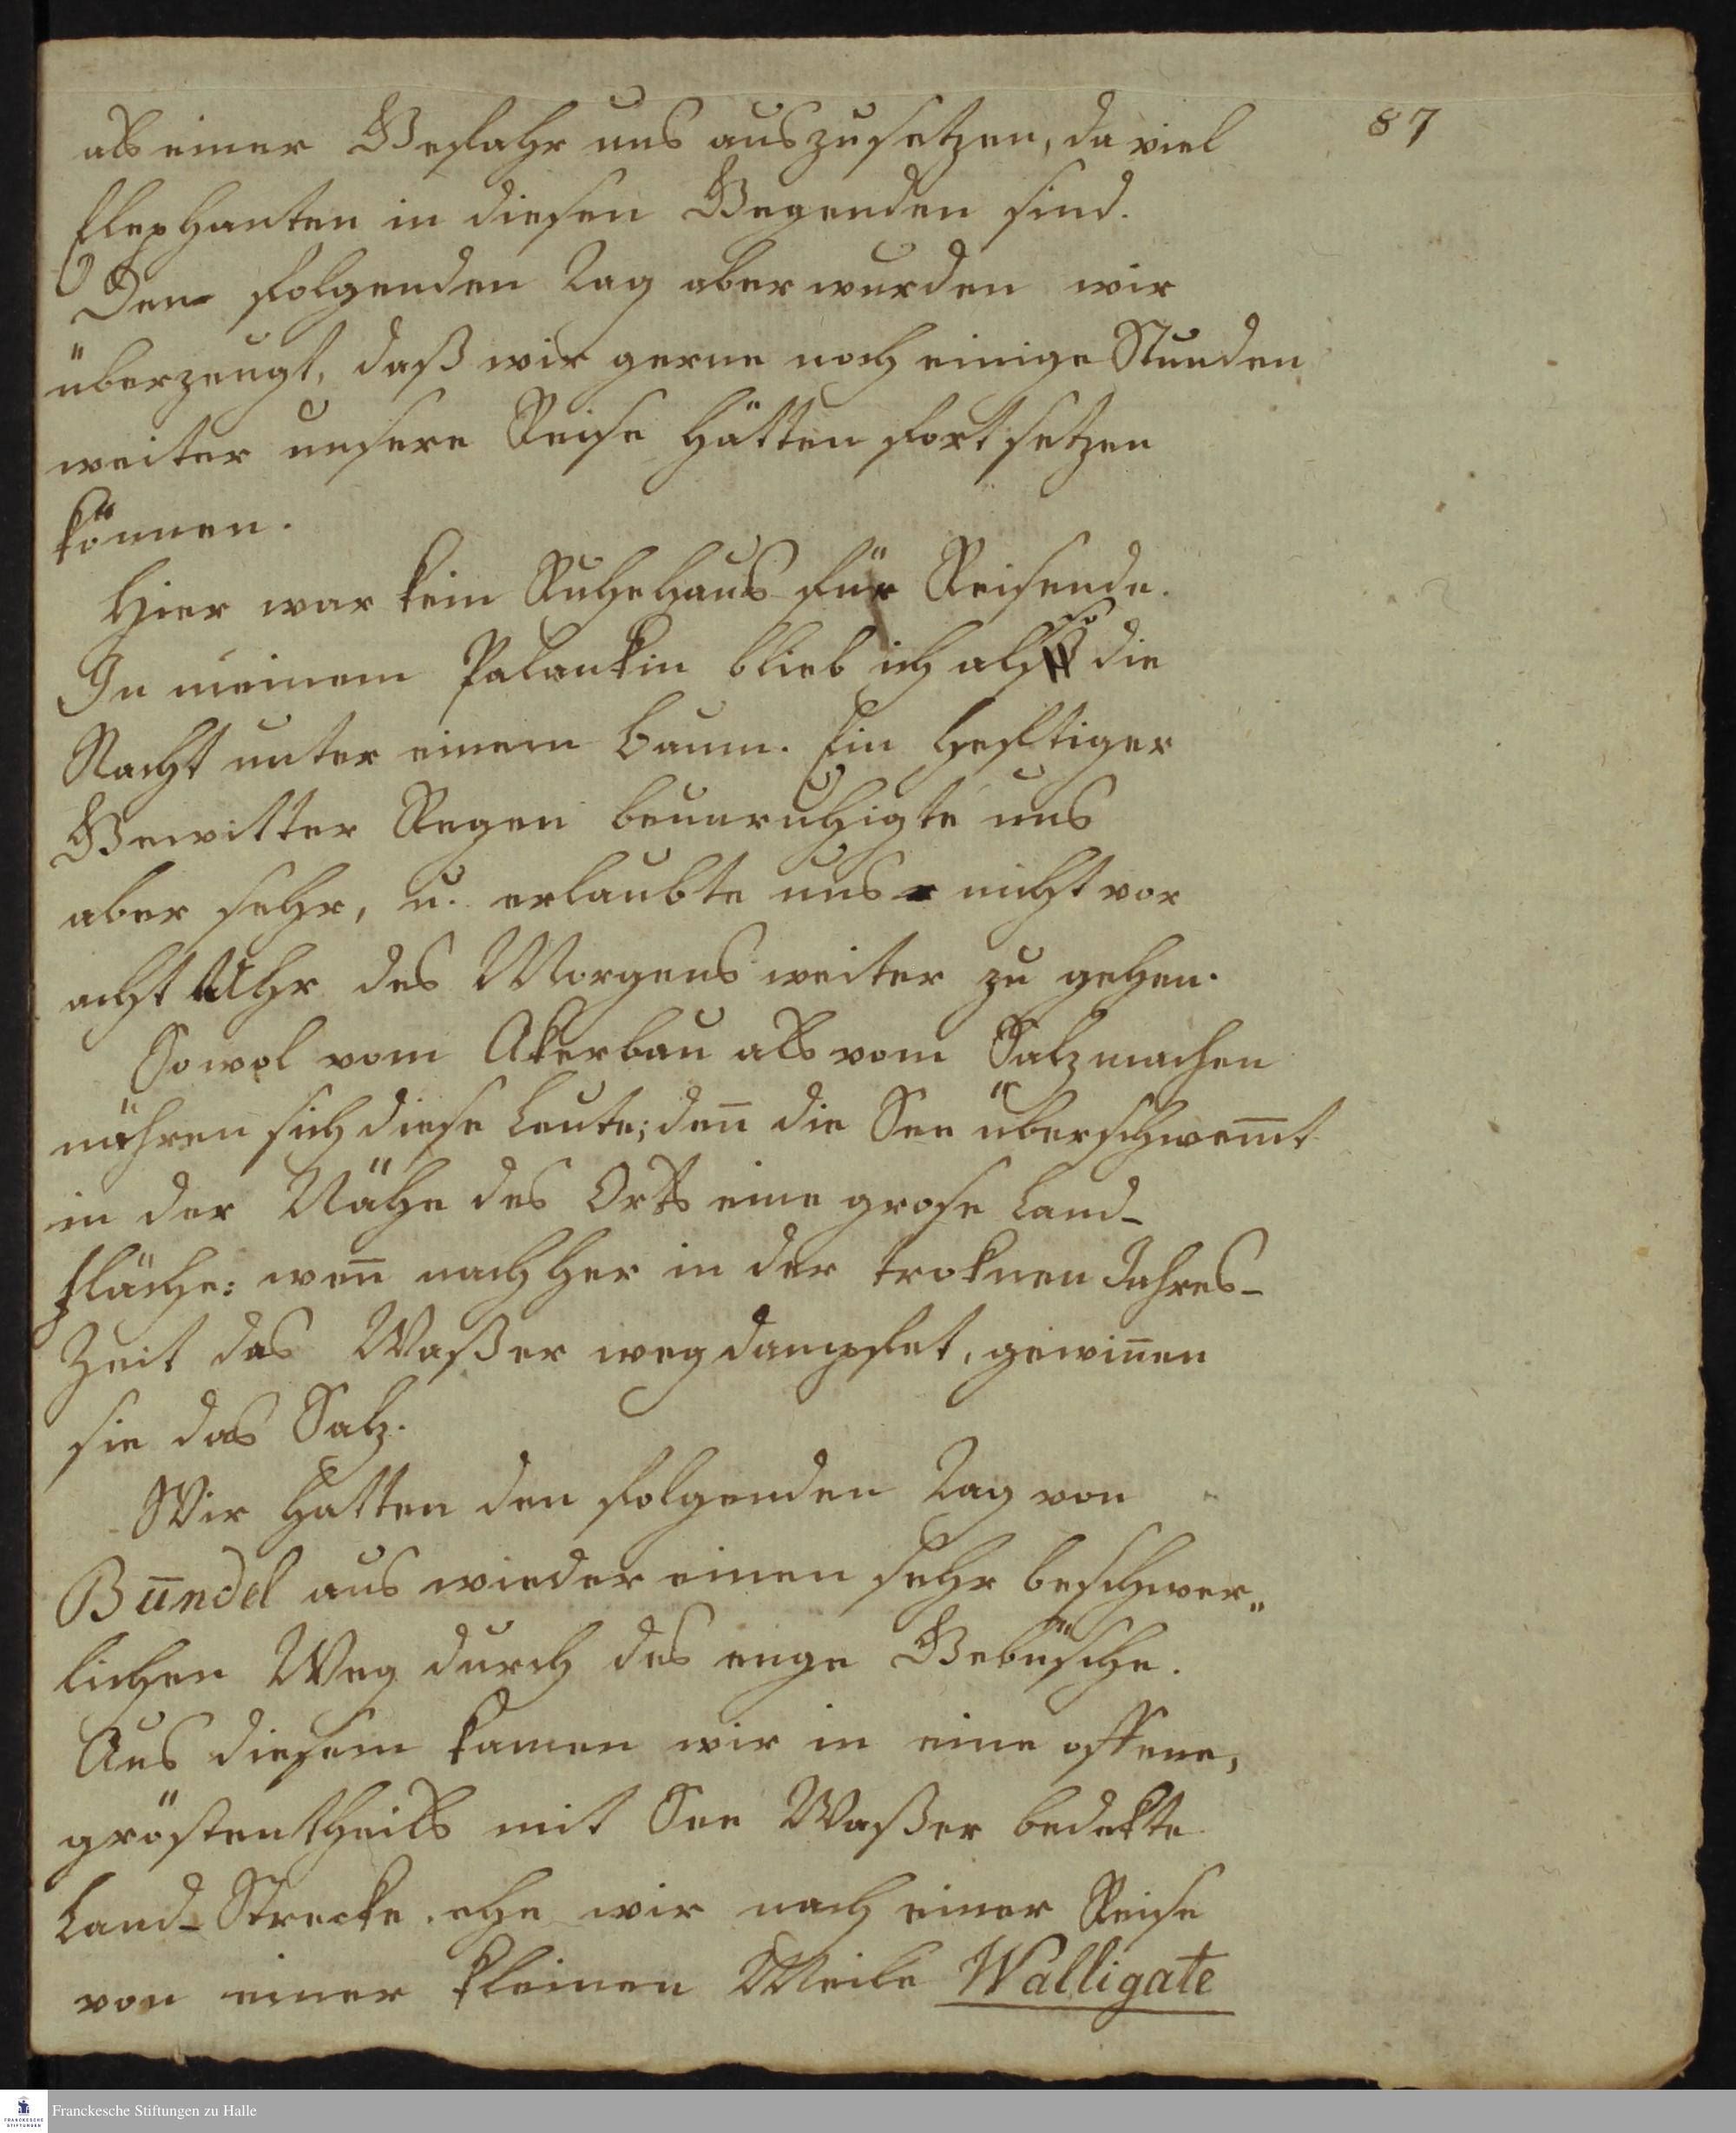 87
als einer Gefahr uns auszusetzen, da viel
Elephanten in diesen Gegenden sind.
Den folgenden Tag aber wurden wir
überzeugt, daß wir gerne noch einige Stunden
weiter unsere Reise hätten fortsetzen
können.
Hier war kein Ruhehaus für Reisende.
In meinem Palankin blieb ich also die
Nacht unter einem Baum. Ein heftiger
Gewitter Regen beunruhigte uns
aber sehr, u. erlaubte uns nicht vor
acht Uhr des Morgens weiter zu gehen.
Sowol vom Akerbau als vom Salzmachen
nähren sich diese Leute; den̅ die See überschwem̅t
in der Nähe des Orts eine grose Land-
fläche: wen̅ nachher in der troknen Jahres-
Zeit das Waßer wegdampfet, gewin̅en
sie das Salz.
Wir hatten den folgenden Tag von
Bundel aus wieder einen sehr beschwer„
lichen Weg durch das enge Gebüsche.
Aus diesem kamen wir in eine offene,
gröstentheils mit See Waßer bedekte
Land-Strecke, ehe wir nach einer Reise
von einer kleinen Meile Walligate
Franckesche Stiftungen zu Halle